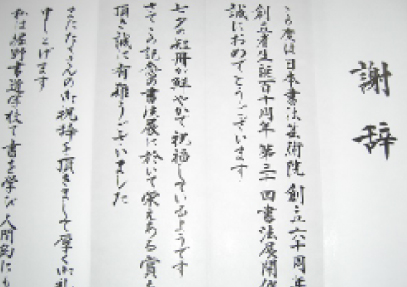 謝辞
この度は日本書法芸術院創立六十周年
創立者生誕百十周年第三一回書法展開催
誠におめでとうございます
七夕の短冊が鮮やかで祝福しているようです
さてこの記念の書法展に於いて栄えある賞を
頂き誠に有難うございました
またたくさんの御祝辞を頂きまして厚く御礼
申し上げます
私は 野書道学校で書を学び人間的にも